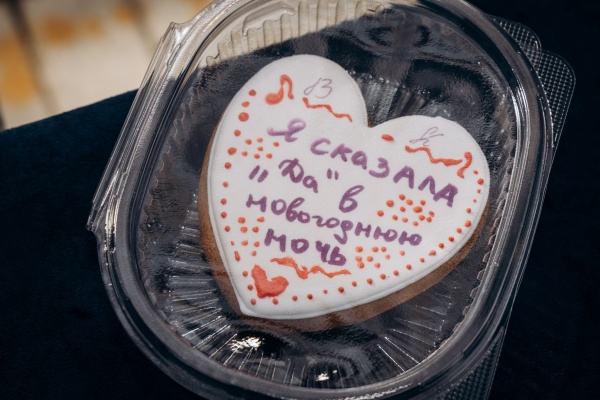 Я СКАЗАЛА
"Да" в
новогоднюю
ночь